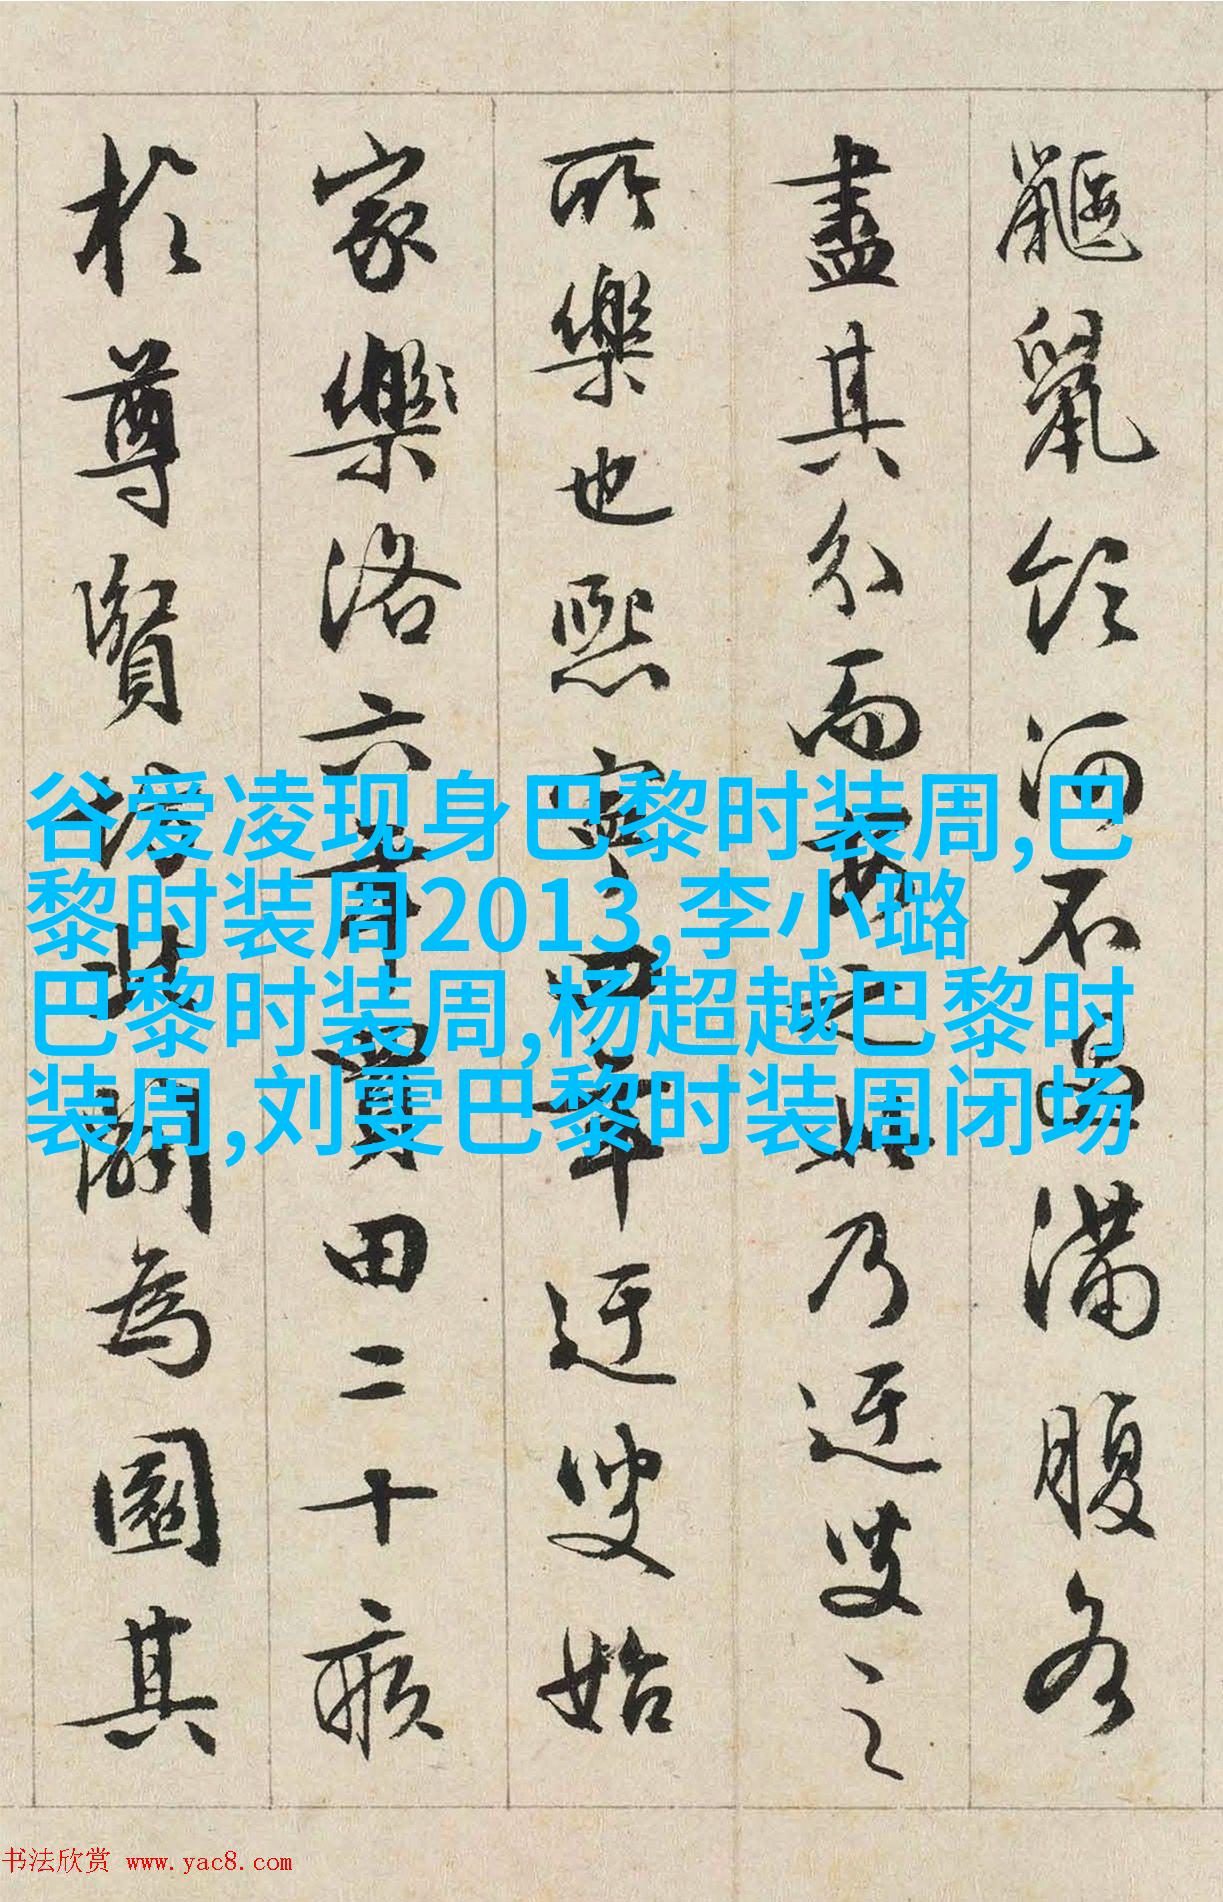 鼴鼠飲河不過滿腹各
盡其分而安之此乃迂叟之
所樂也熙寧四年迂叟始
家樂洛六年買田二十畝
於尊賢坊北闢為園其
谷爱凌现身巴黎时装周,巴
黎时装周2013,李小璐
巴黎时装周,杨超越巴黎时
装周,刘雯巴黎时装周闭场
书法欣赏 www.yac8.com